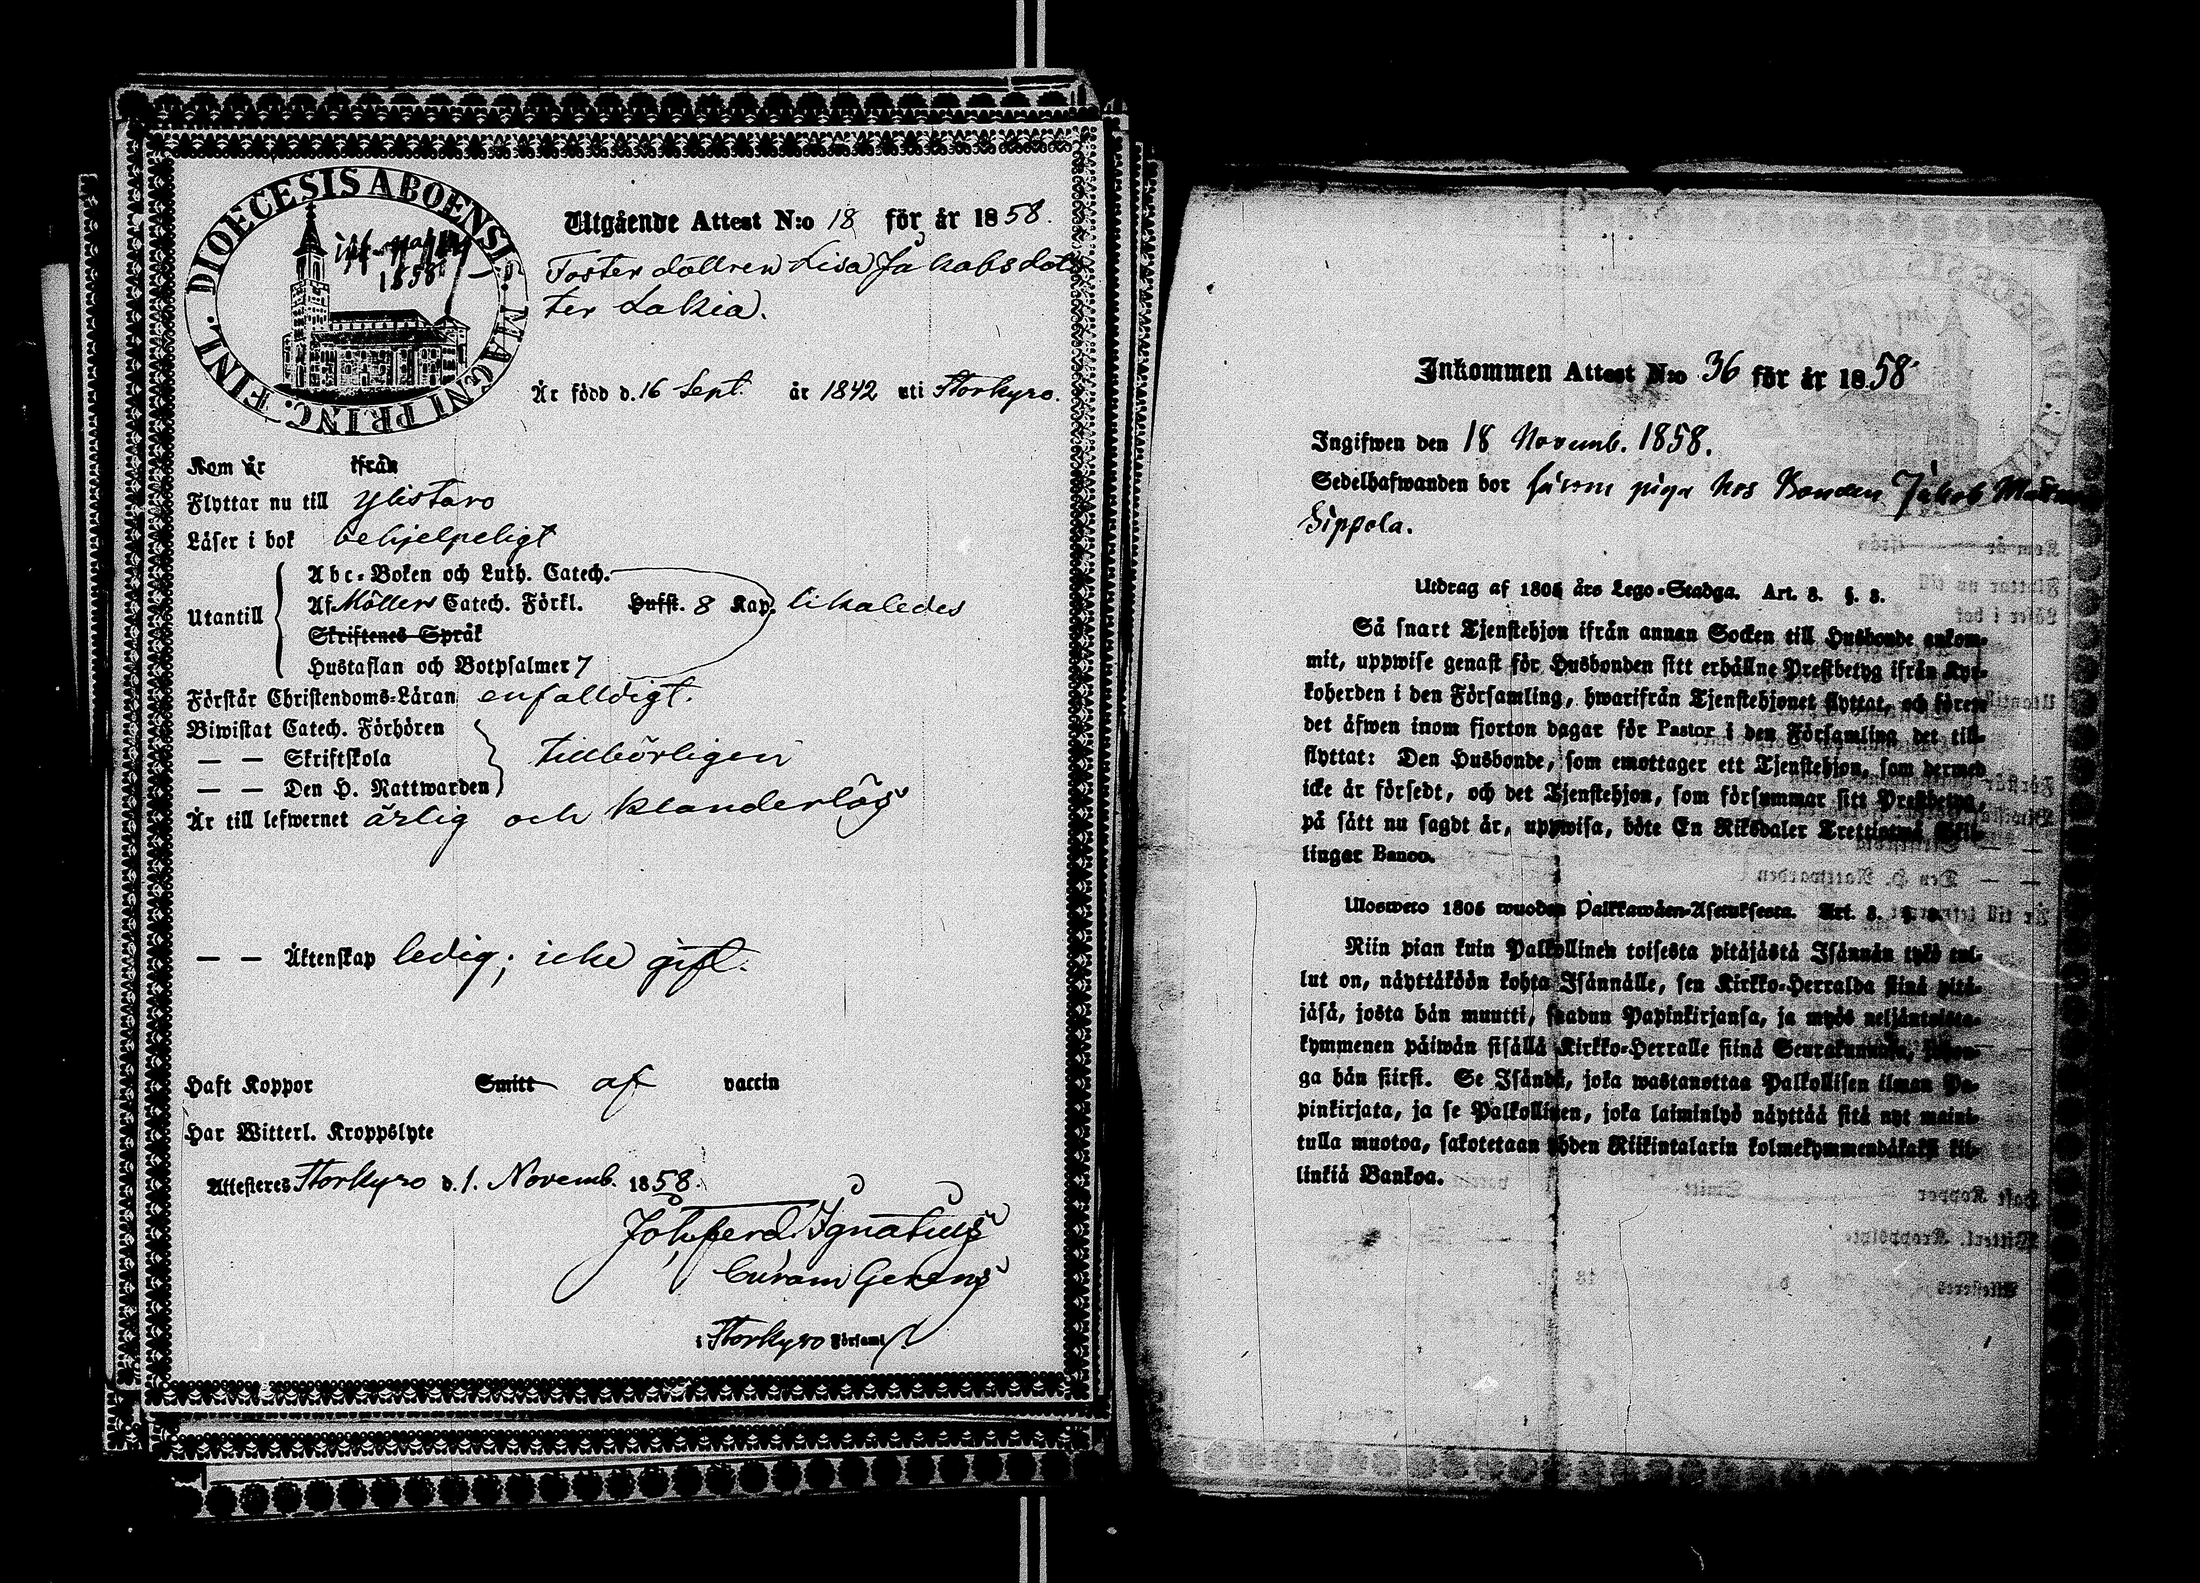 DIOECESIS ABOENSIS. MAGNI PRINC. FINL.
1858
Utgående Attest N:o 18 för år 1858.
Foster dottren Lisa Jakobsdot
ter Lakia.
Är född d. 16 Sept. år 1842 uti Storkyro.
Kom år ifrån
Flyttar nu till Ylistaro
Läser i bok behjelpeligt
Utantill
Abc-Boken och Luth. Catech.
Af Möllers Catech. Förkl. Hufst. 8 Kap. likaledes
Skriftenes Språk
Hustaflan och Botpsalmer 7
Förstår Christendoms-Läran enfalldigt.
Biwistat Catech. Förhören
— — Skriftskola tillbörligen
— — Den H. Nattwarden
Är till lefwernet ärlig och klanderlös
— — Äktenskap ledig; icke gift.
Haft Koppor Smitt af vaccin
Har Witterl. Kroppslyte
Attesteras Storkyro d. 1. Novemb. 1858.
Joh. Ferd. Ignatius
Curam Gerens
i Storkyro Församl.
Inkommen Attest N:o 36 för år 1858
Ingifwen den 18 Novemb. 1858.
Sedelhafwanden bor såsom piga hos Bonden Jakob
Sippola.
Utdrag af 1805 års Lego-Stadga. Art. 8. §. 8.
Så snart Tjenstehjon ifrån annan Socken till Husbonde ankom-
mit, uppwise genast för Husbonden sitt erhållne Prestbetyg ifrån Kyr-
koherden i den Församling, hwarifrån Tjenstehjonet flyttat, och förete
det äfwen inom fjorton dagar för Pastor i den Församling det till-
flyttat: Den Husbonde, som emottager ett Tjenstehjon, som dermed
icke är försedt, och det Tjenstehjon, som försummar sitt Prestbetyg,
på sätt nu sagdt är, uppwisa, böte En Riksdaler Trettiotwå Skil-
lingar Banco.
Ulosweto 1805 wuoden Palkkawäen-Asetuksesta. Art. 8. §. 8.
Niin pian kuin Palkollinen toisesta pitäjästä Isännän tykö tul-
lut on, näyttäköön kohta Isännälle, sen Kirkko-Herralda siinä pitä-
jäsä, josta hän muutti, saadun Papinkirjansa, ja myös neljäntoista-
kymmenen päiwän sisällä Kirkko-Herralle siinä Seurakunnasa, johon-
ga hän siirsi. Se Isändä, joka wastanottaa Palkollisen ilman Pa-
pinkirjata, ja se Palkollinen, joka laiminlyö näyttää sitä nyt maini-
tulla muotoa, sakotetaan yhden Riikintalarin kolmekymmendäkaksi kil-
linkiä Bankoa.